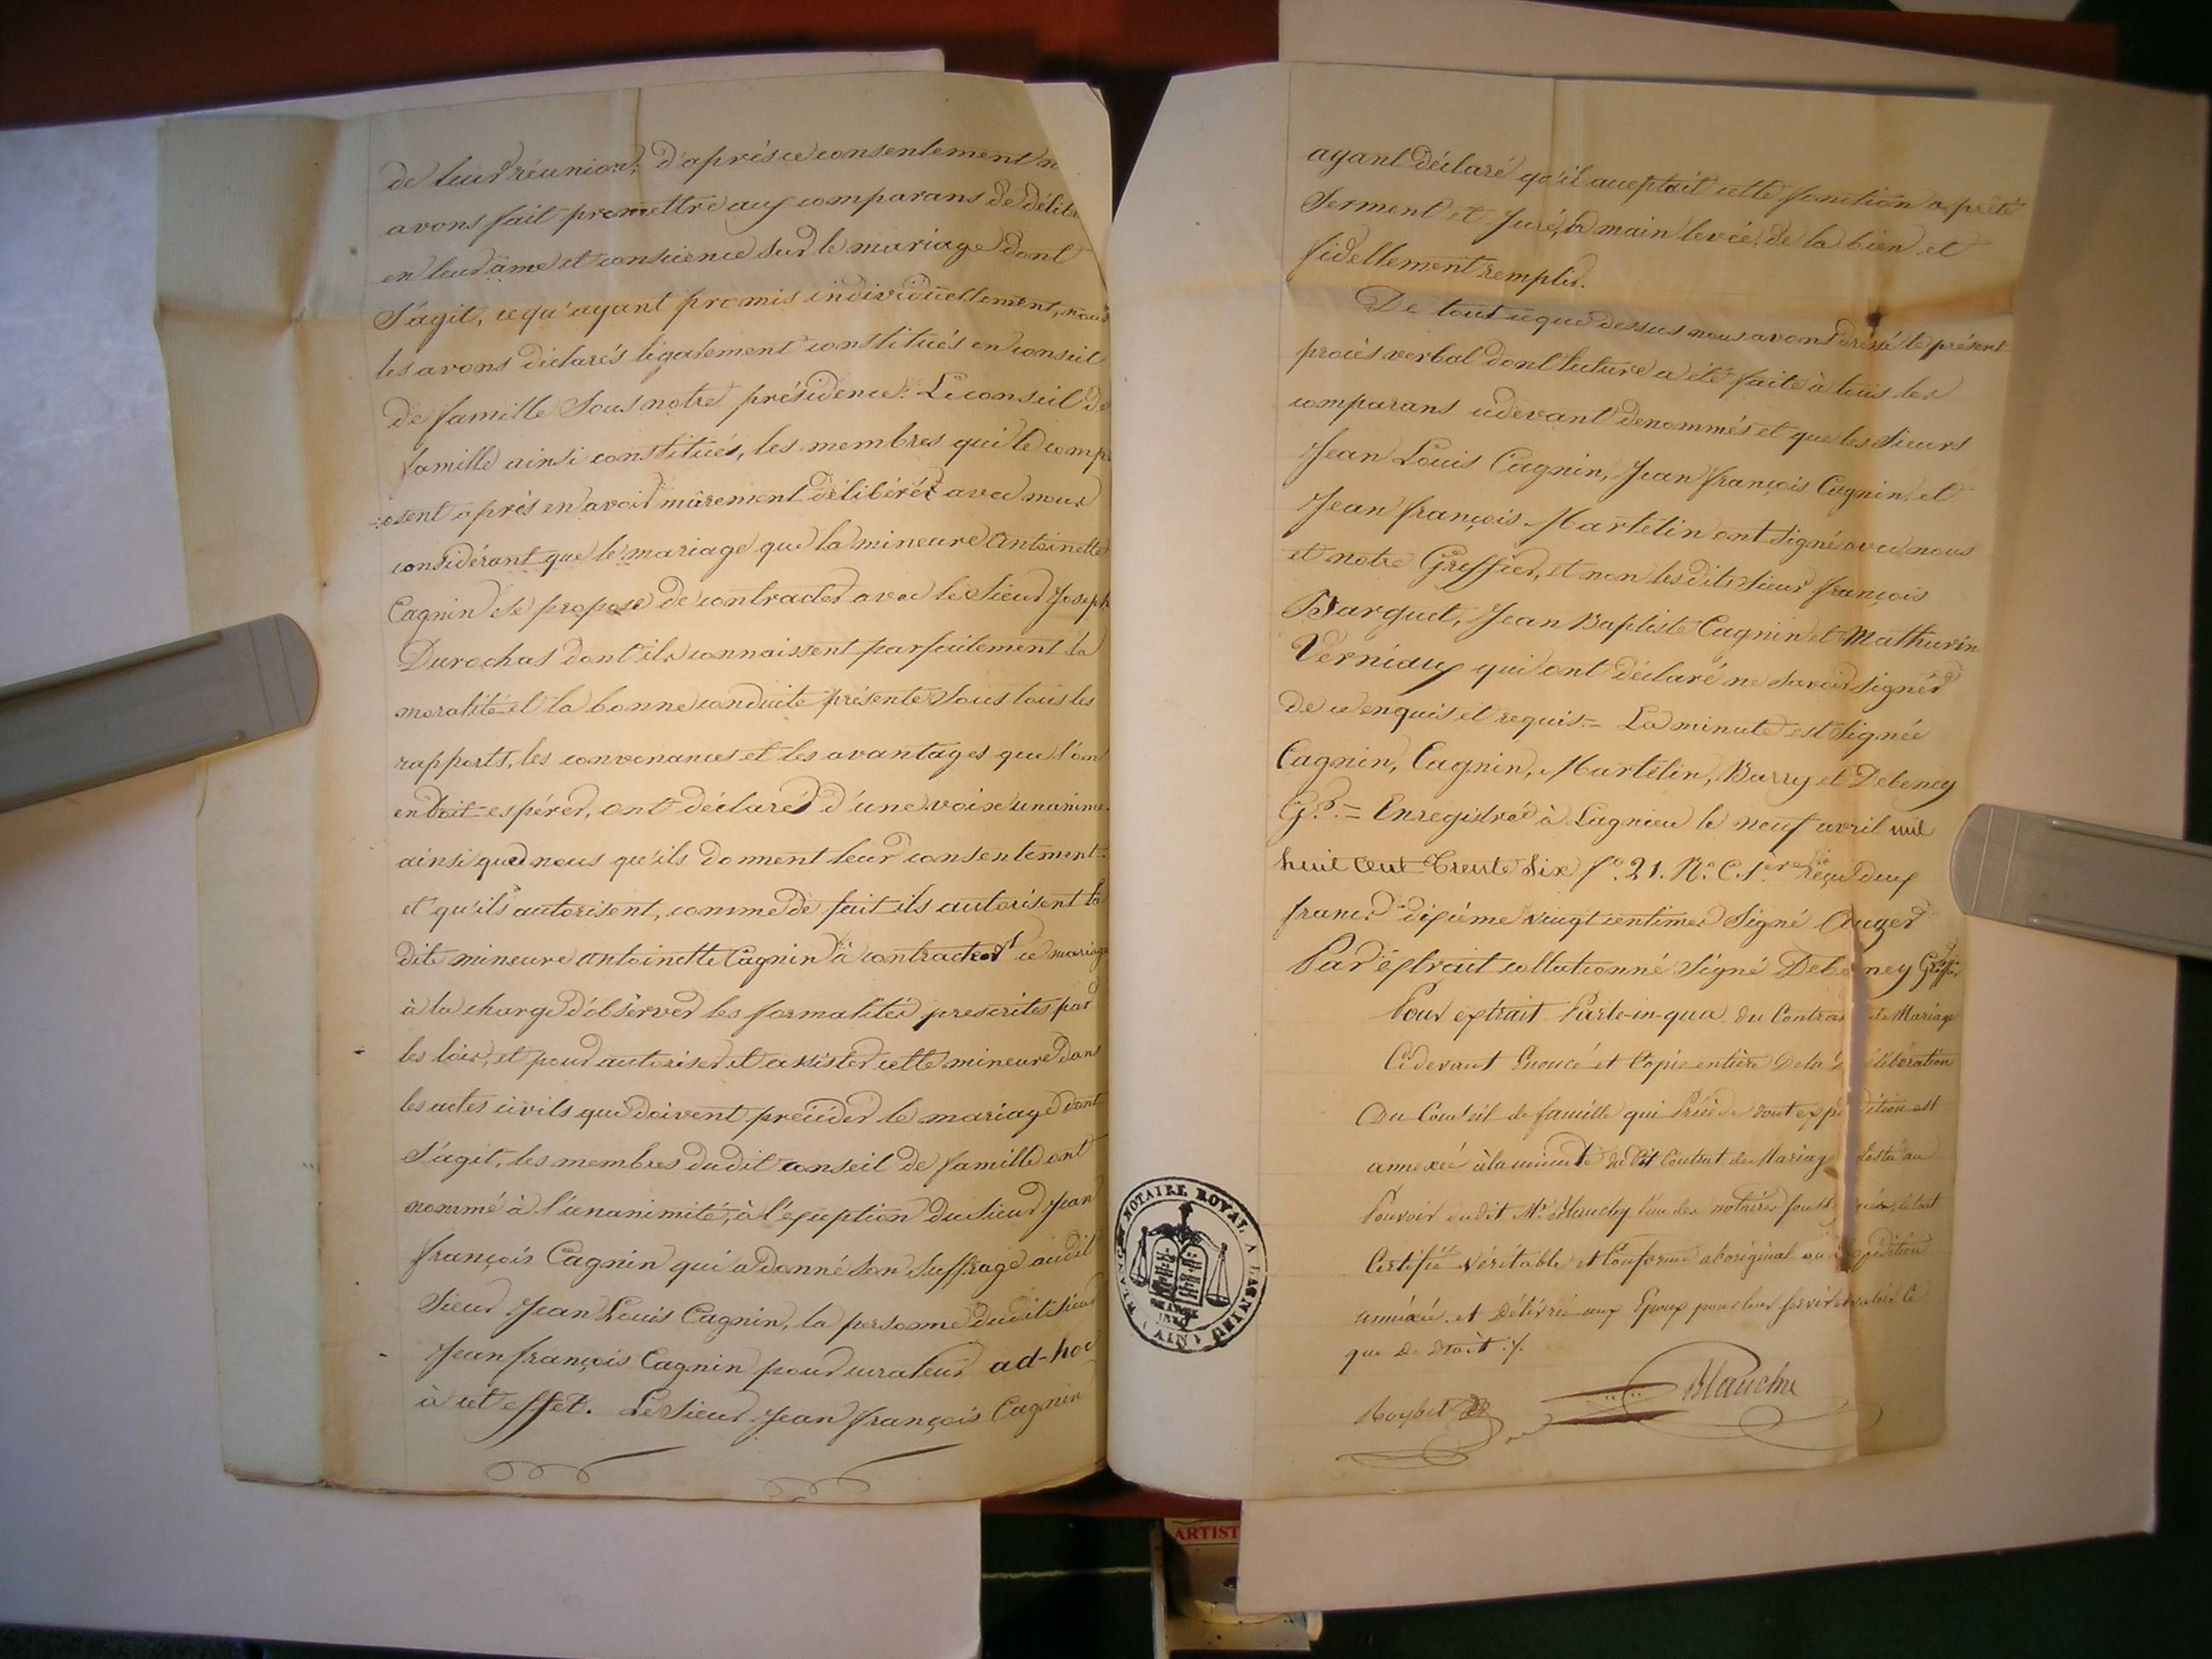 de leur réunion; d'après ce consentement n
avons fait promettre aux comparans de délib
en leur âme et conscience sur le mariage dont
S'agit, ce qu'ayant promis individuellement, nous
les avons déclarés légalement constitués en conseil
de famille sous notre présidence. Le conseil de
famille ainsi constitués, les membres qui le comp
-osent après en avoir mûrement délibérét avec nous
considérant que le mariage que la mineure Antoinette
Cagnin se propose de contracter avec le Sieur Joseph
Durochat dont ils connaissent parfaitement la
moralité et la bonne conduite présente sous tous les
rapports, les convenances et les avantages que l'on
en doit espérer, ont déclarés d'une voix unanime
ainsi que nous qu'ils donnent leur consentement
et qu'ils autorisent, comme de fait ils autorisent la
dite mineure Antoinette Cagnin à contracter ce mariage
à la charge d'observer les formalités prescrites par
les lois, et pour autoriser et assister cette mineure dans
les actes civils qui doivent précéder le mariage dont
S'agit, les membres dudit conseil de famille ont
nommé à l'unanimité, à l'exception du Sieur Jean
françois Cagnin qui a donné son suffrage audit
Sieur Jean Louis Cagnin, la personne dudit Sieur
Jean françois Cagnin pour curateur ad-hoc
à cet effet. Le Sieur Jean françois Cagnin
ayant déclaré qu'il acceptait cette fonction a prêté
Serment et Juré, la main levée, de la bien et
fidellement remplir.
De tout ce que dessus nous avons dressé le présent
procès verbal dont lecture a été faite à tous les
comparans cidevant denommés et que les Sieurs
Jean Louis Cagnin, Jean françois Cagnin et
Jean françois Martelin ont signé avec nous
et notre Greffier, et non lesdits Sieur françois
Barquet, Jean Baptiste Cagnin et Mathurin
Verniaux qui ont déclaré ne savoir signer
de ce enquis et requis = La minute est signée
Cagnin, Cagnin, Martelin, Barry et Debeney
G.er = Enregistré à Lagnieu le neuf avril mil
huit cent trente six f.o 21. R.o C. 1.ère reçu deux
francs dixième vingt centimes Signé Auger
Par extrait collationné Signé Debeney Greffier
Pour extrait Parte-in-qua du Contrat de Mariage
Cidevant Enoncé et Copie entière De la délibération
Du Conseil de famille qui Précède dont expédition est
annexée à la minute du dit Contrat de Mariage restée au
Pouvoir dudit M.e Blanchy l'un des notaires soussignés, le tout
Certifié Véritable et Conforme à l'original ou expédition
annéxée et Délivrée aux Epoux pour leur servir et valoir ce
que De droit ./.
Blanchy
NOTAIRE ROYAL A LAGNIEU (AIN)
ARTIST